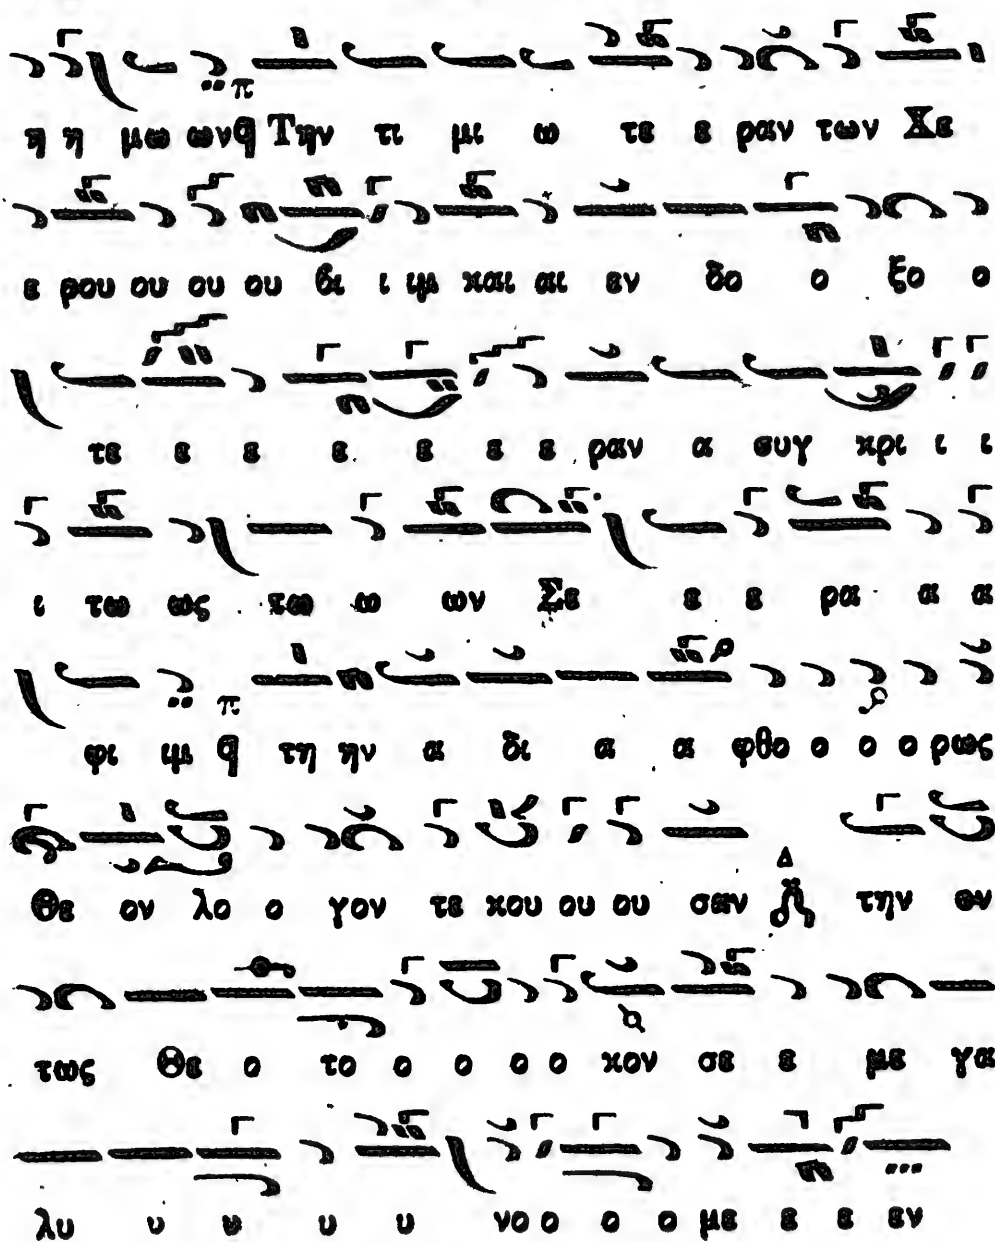 η η μω ων Την τι μι ω τε ε ραν των Χε
ε ρου ου ου ου βι ι ιμ και αι εν δο ο ξο ο
τε ε ε ε ε ε ε ραν α συγ κρι ι ι
ι τω ως τω ω ων Σε ε ε ρα α α
φι ιμ τη ην α δι α α φθο ο ο ο ρως
Θε ον λο ο γον τε κου ου ου σαν την ον
τως Θε ο το ο ο ο ο κον σε ε με γα
λυ υ υ υ υ νο ο ο ο με ε ε εν